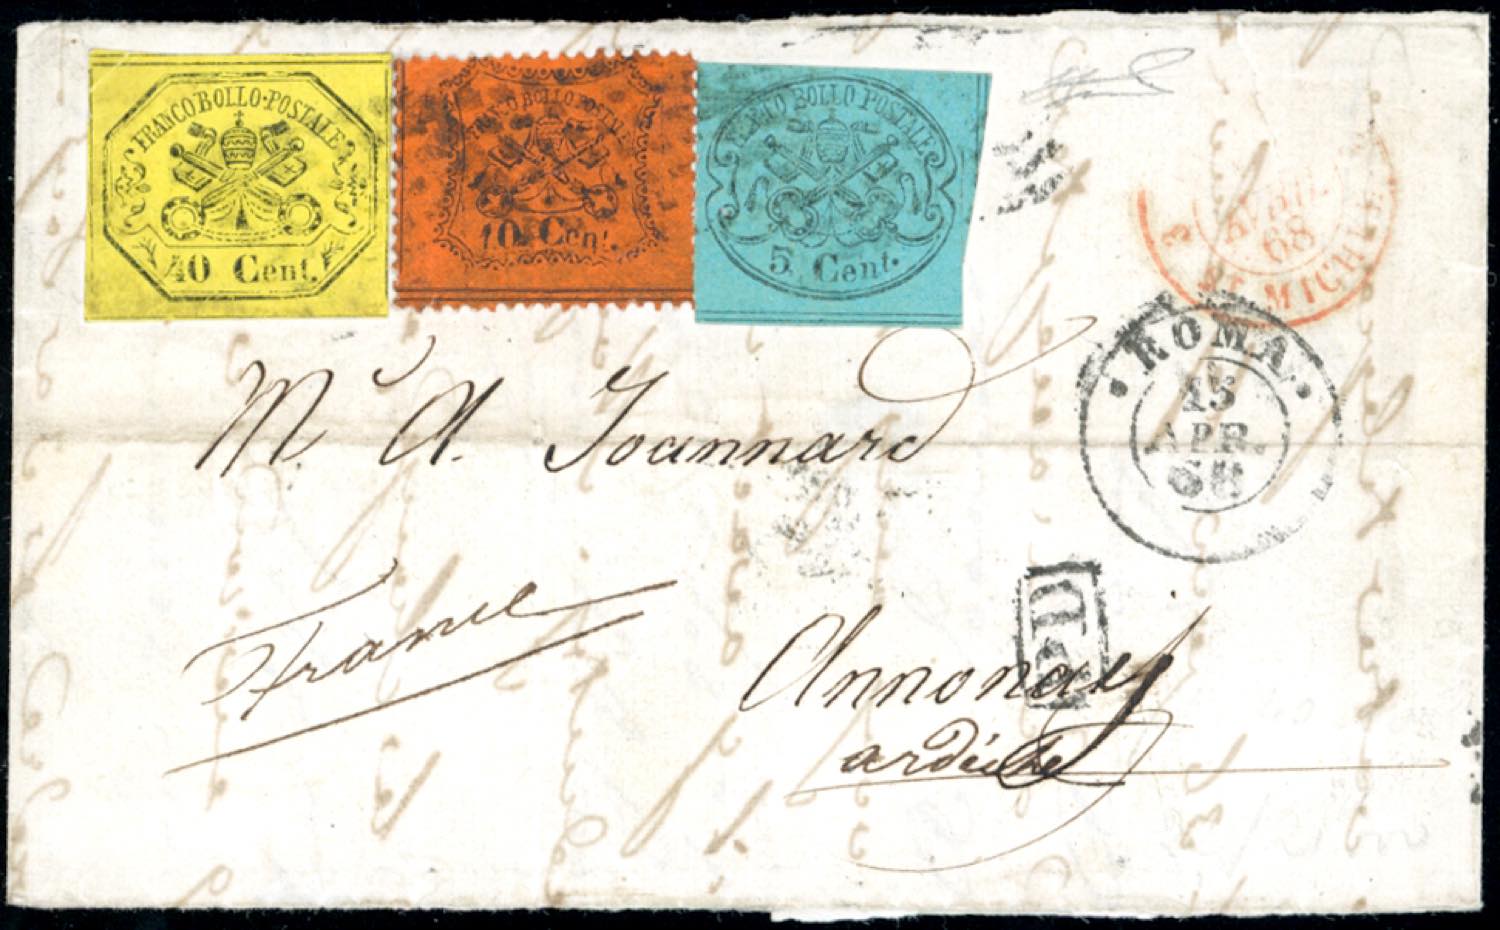 FRANCO BOLLO POSTALE
40 Cent.
FRANCO BOLLO POSTALE
10 Cent.
FRANCO BOLLO POSTALE
5 Cent.
AVRIL
68
ST MICHEL
ROMA
15
APR.
68
Mr. A. Joannard
France
PD
Annonay
ardèche